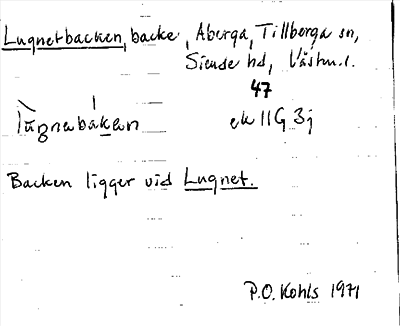 Lugnetbacken, backe, Aberga, Tillberga sn,
Siende hd, Västm.l.
47
ek 11G 3j
Backen ligger vid Lugnet.
P.O. Kohls 1971